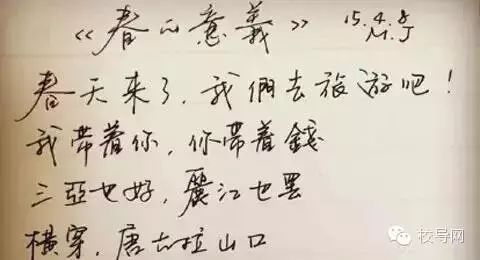 《春的意義》 15.4.8
M.J
春天来了，我們去旅游吧！
我带着你，你带着錢
三亞也好，麗江也罢
橫穿，唐古拉山口
校导网